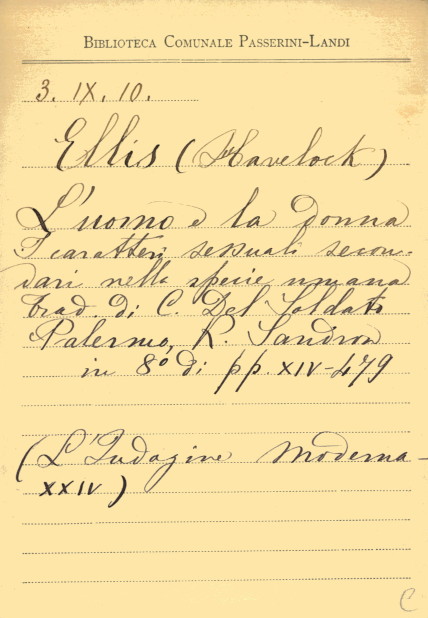 BIBLIOTECA COMUNALE PASSERINI-LANDI
3. IX. 10.
Ellis (Havelock)
L'uomo e la donna
I caratteri sessuali secon-
dari nella specie umana
trad. di C. Del Soldato
Palermo, R. Sandron
in 8° di pp. XIV-479
(L'Indagine Moderna-
XXIV)
C